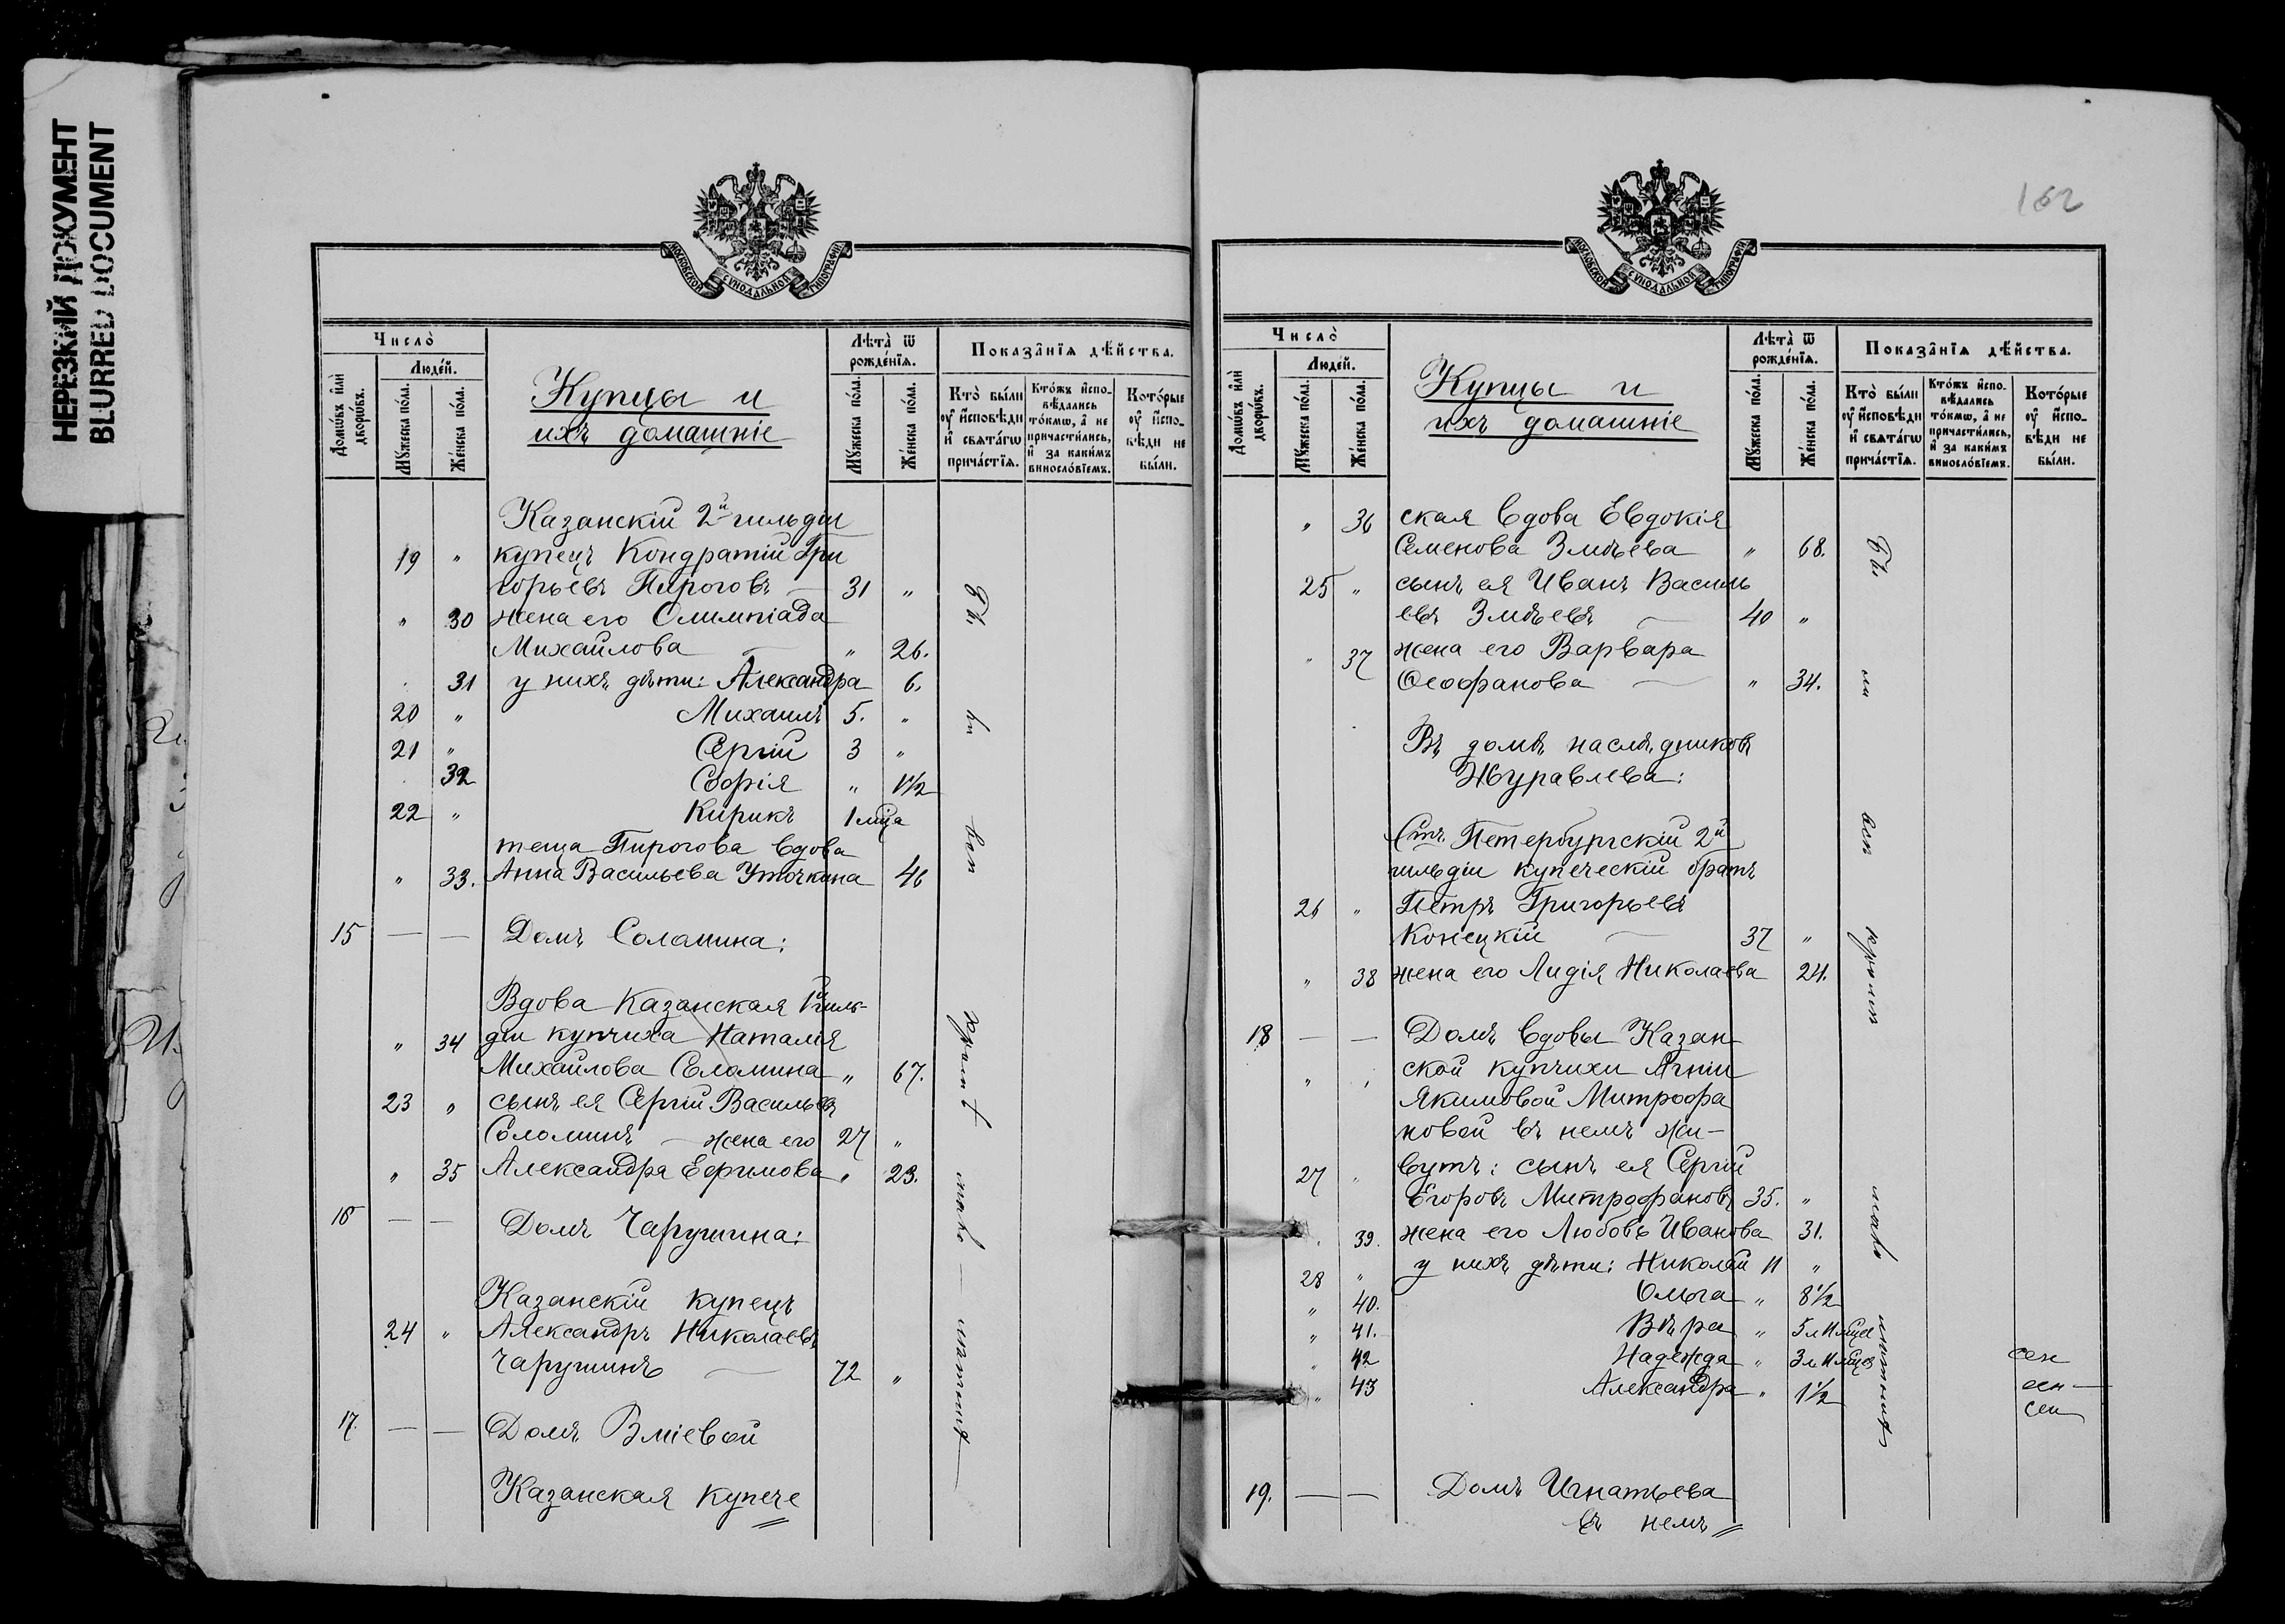 НЕРЕЗКИЙ ДОКУМЕНТ
BLURRED DOCUMENT
МОСКОВСКОЙ СУНОДАЛЬНОЙ ТИПОГРАФІИ
Число̀
Людей.
Домѡвъ и҆лѝ дворѡвъ.
Мꙋжеска по́ла.
Же́нска по́ла.
Купцы и
ихъ домашніе
Лѣта̀ ѿ рожде́нїѧ.
Мꙋжеска по́ла.
Же́нска по́ла.
Показа̑нїѧ дѣ́йства.
Кто̀ бы́ли ᲂу҆ и҆сповѣди и҆ свѧта́гѡ прича́стїѧ.
Кто́жъ и҆спо- вѣдались то́кмѡ, а҆ не причасти́лись, и҆ за каки́мъ винослѡ́вїемъ.
Кото́рые ᲂу҆ и҆спо- вѣди не бы́ли.
Казанскій 2й гильдіи
19 " купецъ Кондратій Гри
горьевъ Пироговъ — 31 "
" 30 жена его Олимпіада
Михайлова — " 26.
31 у нихъ дѣти: Александра 6.
20 " Михаилъ 5. "
21 " Сергій 3 "
32 Софія " 1½
22 " Кирикъ 1 мѣца
теща Пирогова вдова
" 33. Анна Васильева Уточкина 46
15 — — Домъ Соломина:
Вдова Казанская 1й гиль-
" 34 діи купчиха Наталія
Михайлова Соломина " 67.
23 " сынъ ея Сергій Васильевъ
Соломинъ — жена его 27 "
" 35 Александра Ефимова " 23.
16 — — Домъ Чарушина:
Казанскій купецъ
24 " Александръ Николаевъ
Чарушинъ — 72 "
17. — — Домъ Зміевой
Казанская купече
162
МОСКОВСКОЙ СУНОДАЛЬНОЙ ТИПОГРАФІИ
Число̀
Людей.
Домѡвъ и҆лѝ дворѡвъ.
Мꙋжеска по́ла.
Же́нска по́ла.
Купцы и
ихъ домашніе
Лѣта̀ ѿ рожде́нїѧ.
Мꙋжеска по́ла.
Же́нска по́ла.
Показа̑нїѧ дѣ́йства.
Кто̀ бы́ли ᲂу҆ и҆сповѣди и҆ свѧта́гѡ прича́стїѧ.
Кто́жъ и҆спо- вѣдались то́кмѡ, а҆ не причасти́лись, и҆ за каки́мъ винослѡ́вїемъ.
Кото́рые ᲂу҆ и҆спо- вѣди не бы́ли.
" 36 ская вдова Евдокія
Семенова Змѣева " 68.
25 " сынъ ея Иванъ Василь
евъ Змѣевъ — 40 "
" 37 жена его Варвара
Ѳеофанова — " 34.
Въ домѣ наслѣдниковъ
Журавлева:
Стъ. Петербургскій 2й
гильдіи купеческій братъ
26 " Петръ Григорьевъ
Конецкій — 37 "
" 38 жена его Лидія Николаева 24.
18 — — Домъ вдовы Казан-
ской купчихи Агніи
Якимовой Митрофа
новой въ немъ жи-
27 " вутъ: сынъ ея Сергій
Егоровъ Митрофановъ 35. "
39. жена его Любовь Иванова 31.
28 " у нихъ дѣти: Николай 11 "
" 40. Ольга " 8½
" 41. Вѣра " 5 л 11 мѣцев
" 42 Надежда " 3 л 11 мѣцев
" 43 Александра " 1½
19. — — Домъ Игнатьева
въ немъ